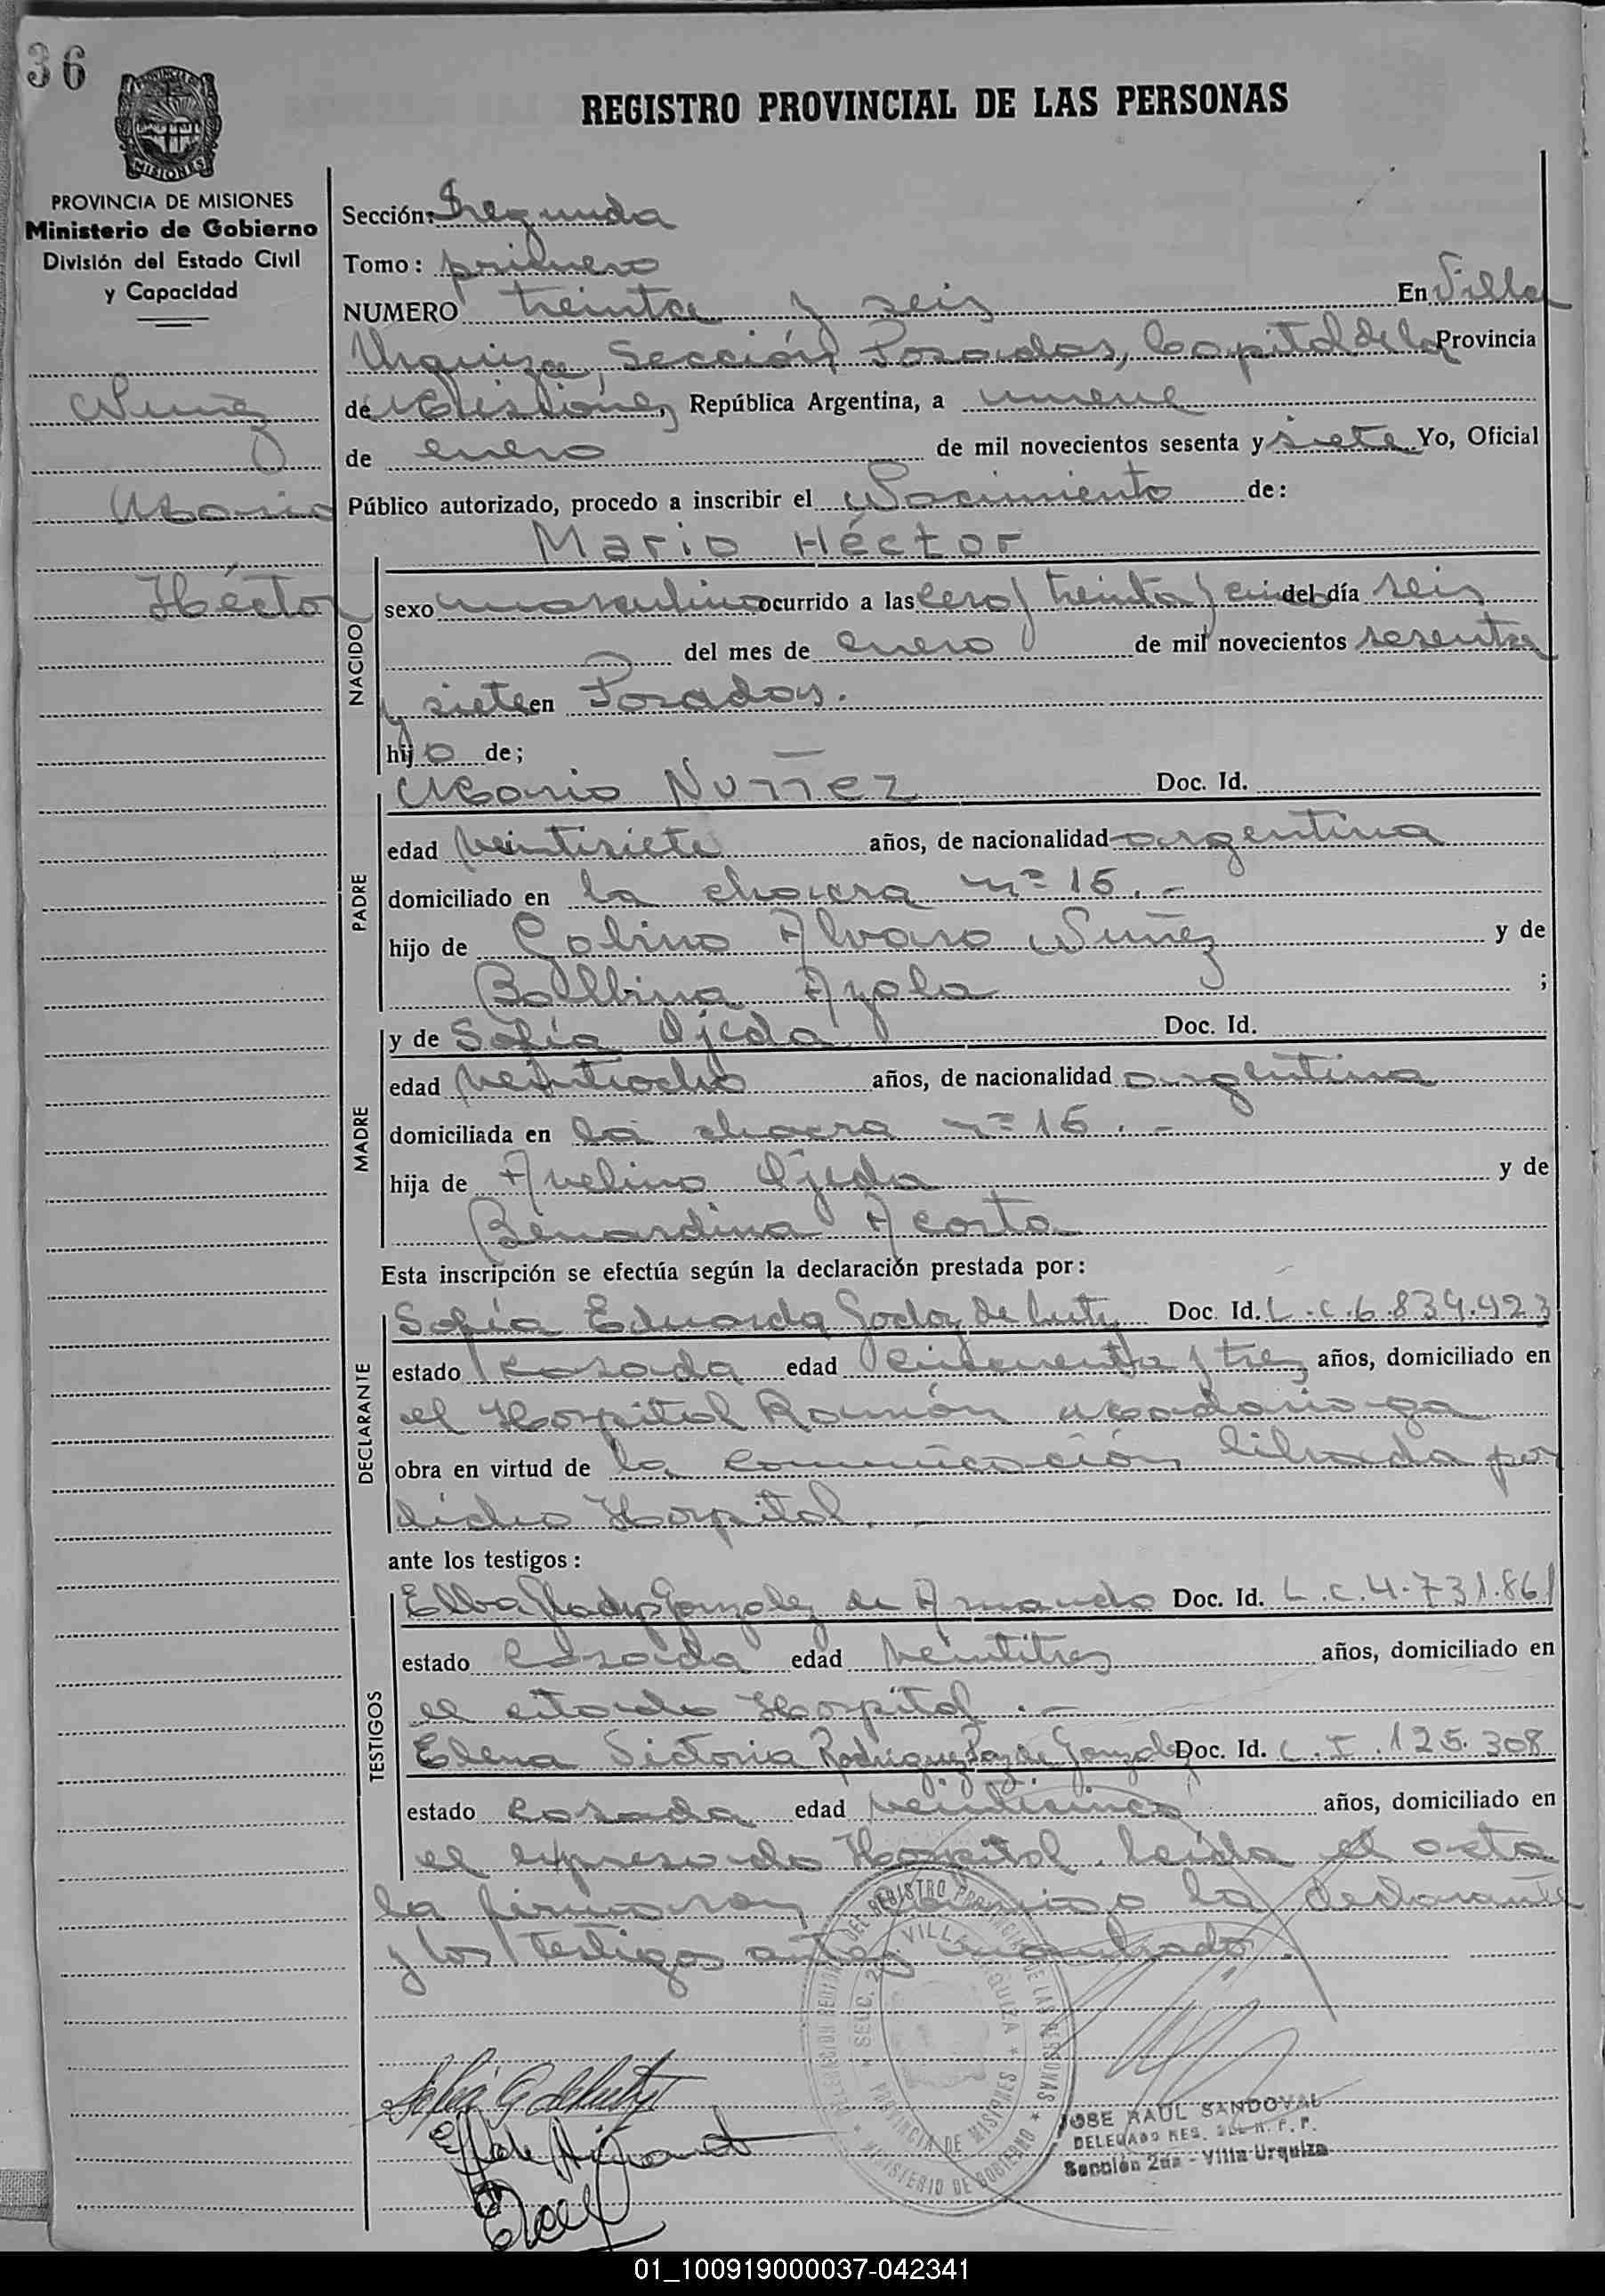 36
REGISTRO PROVINCIAL DE LAS PERSONAS
MISIONES
PROVINCIA DE MISIONES
Ministerio de Gobierno
División del Estado Civil
y Capacidad
Nuñez
Mario
Héctor
Sección: Segunda
Tomo: primero
NUMERO treinta y seis En Villa
Urquiza, Sección Posadas, Capital de la Provincia
de Misiones, República Argentina, a nueve
de enero de mil novecientos sesenta y siete Yo, Oficial
Público autorizado, procedo a inscribir el Nacimiento de:
Mario Héctor
NACIDO
sexo masculino ocurrido a las cero y treinta y cinco del día seis
del mes de enero de mil novecientos sesenta
y siete en Posadas.
hijo de;
PADRE
Mario Nuñez Doc. Id.
edad veintisiete años, de nacionalidad argentina
domiciliado en la chacra nº 15.-
hijo de Gabino Alvaro Nuñez y de
Balbina Ayala ;
MADRE
y de Sofía Ojeda Doc. Id.
edad veintiocho años, de nacionalidad argentina
domiciliada en la chacra nº 15.-
hija de Avelino Ojeda y de
Bernardina Acosta
Esta inscripción se efectúa según la declaración prestada por:
DECLARANTE
Sofía Eduarda Godoy de Doc. Id. L.C.6.839.923
estado casada edad cincuenta y tres años, domiciliado en
el Hospital Ramón Madariaga
obra en virtud de la comunicación librada por
dicho Hospital.-
ante los testigos:
TESTIGOS
Elba Gladys Gonzalez de Armando Doc. Id. L.C.4.731.861
estado casada edad veintitres años, domiciliado en
el citado Hospital.-
Elena Victoria Rodriguez Paz de Gonzalez Doc. Id. C.I.125.308
estado casada edad veinticinco años, domiciliado en
el expresado Hospital. Leída el acta
la firman conmigo la declarante
y los testigos antes nombrados.
DEL REGISTRO PROVINCIAL DE LAS PERSONAS
SECC. 2 VILLA URQUIZA
PROVINCIA DE MISIONES
MINISTERIO DE GOBIERNO
JOSE RAUL SANDOVAL
DELEGADO REG. DEL R. P. P.
Sección 2da - Villa Urquiza
01_100919000037-042341